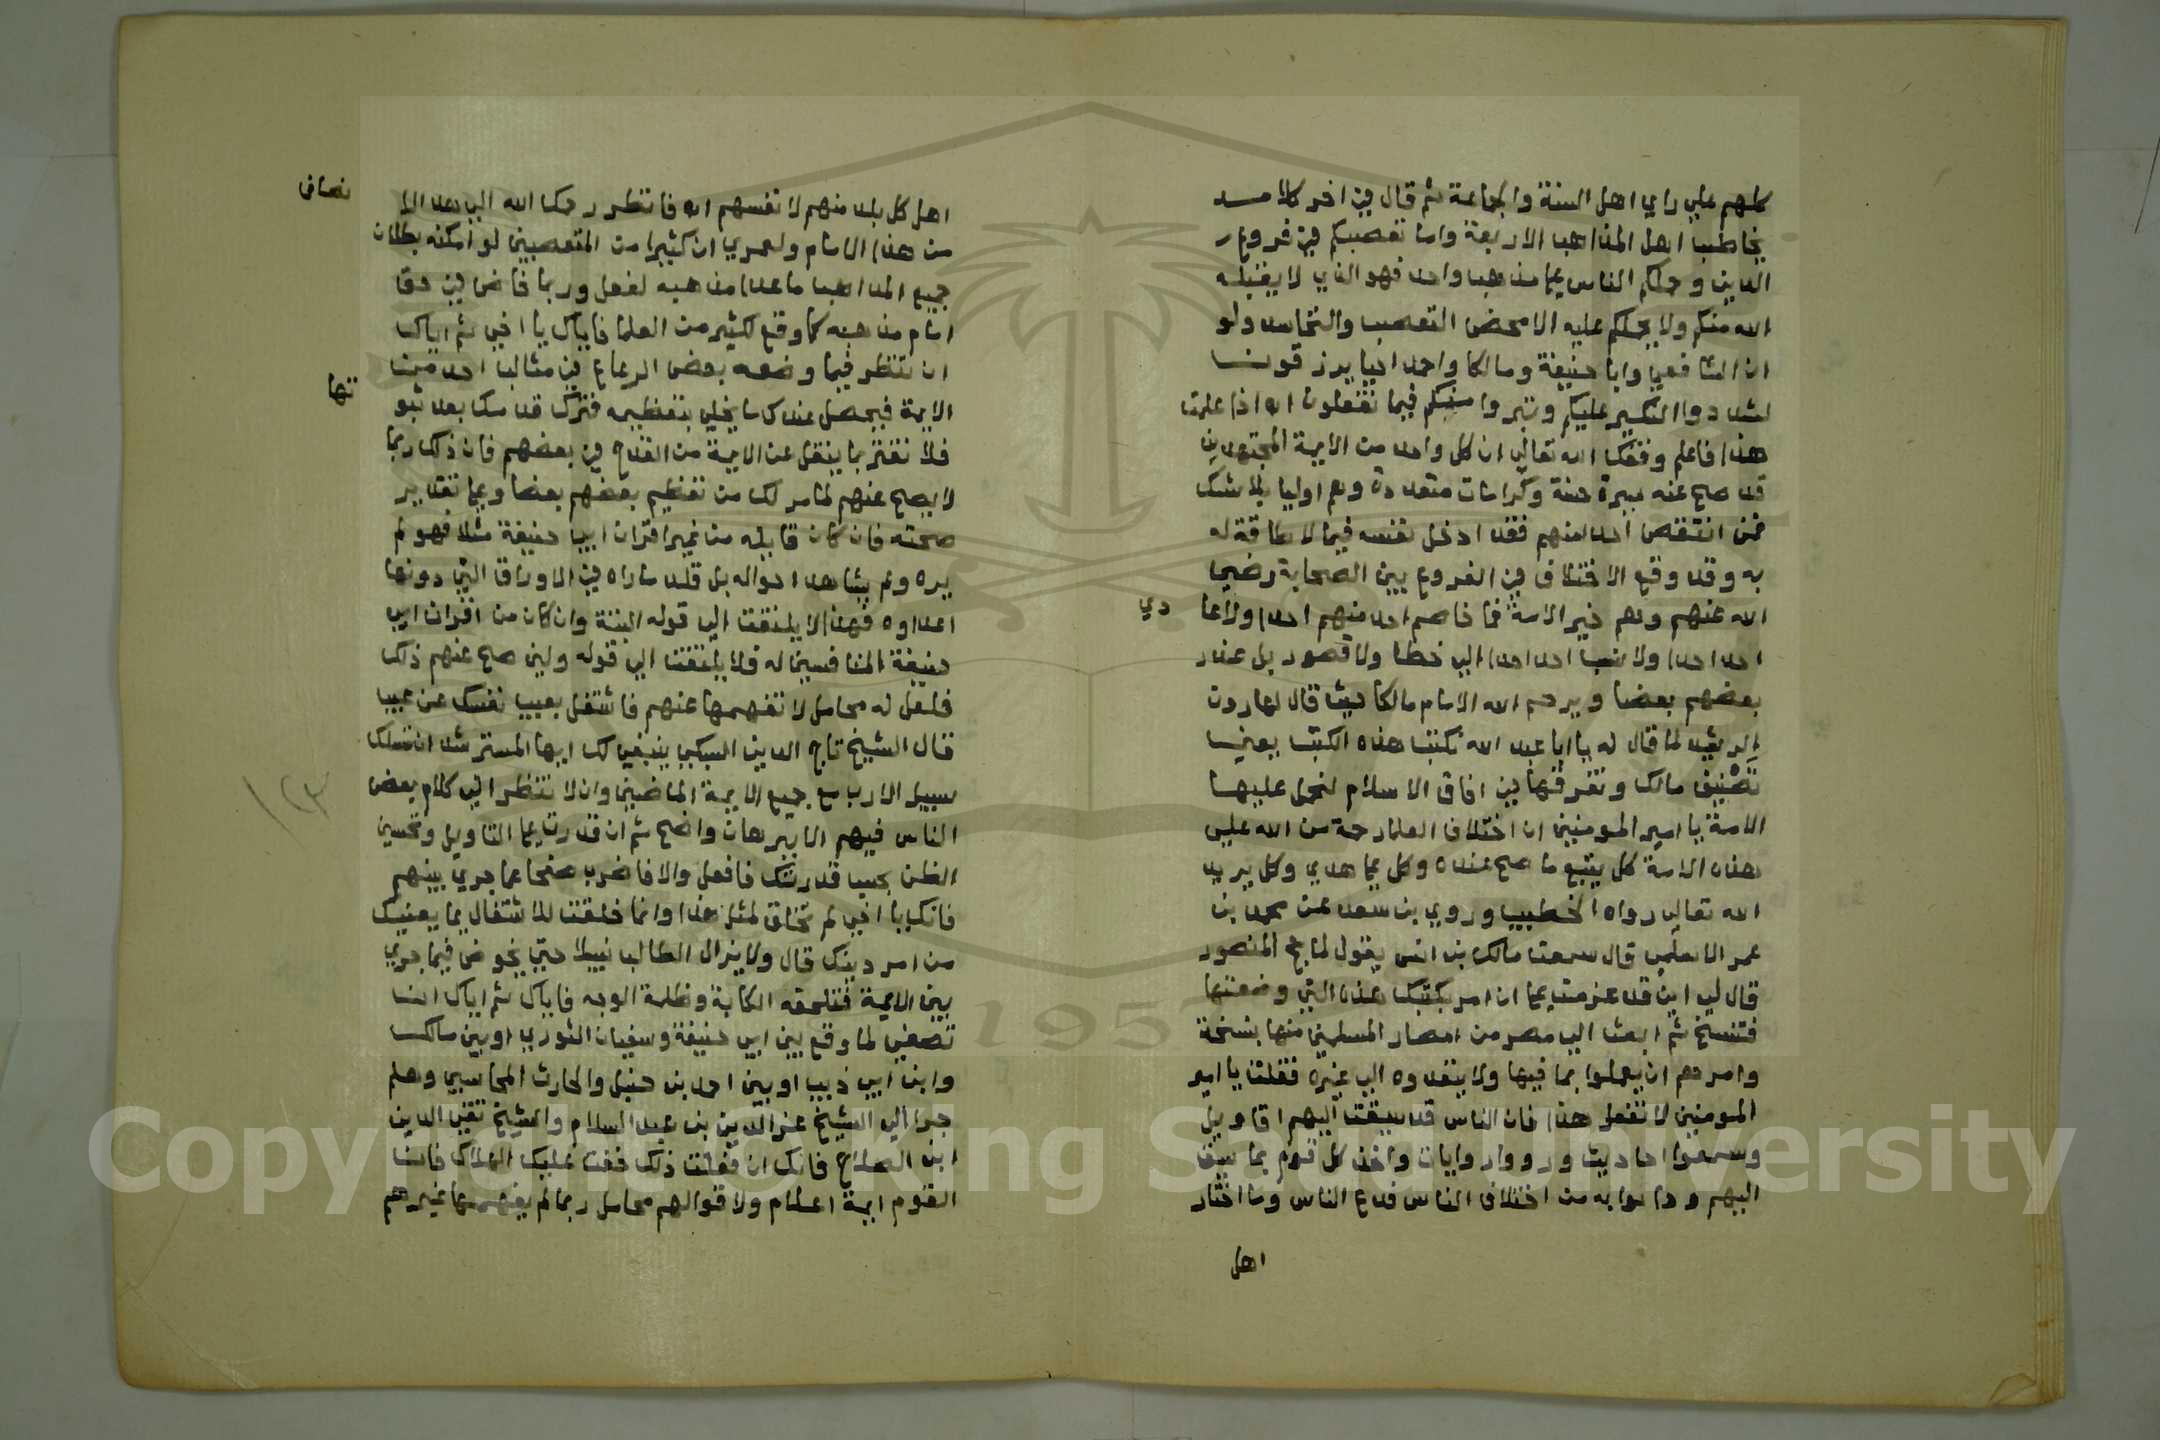 كلهم علي راي اهل السنة والجماعة ثم قال في اخر كلامه
يخاطب اهل المذاهب الاربعة واما تعصبكم في فروع
الدين وحملكم الناس علي مذهب واحد فهو الذي لا يقبله
الله منكم ولا يحملكم عليه الا محض التعصب والتحاسد ولو
ان الشافعي وابا حنيفة ومالكا واحمد احيا يرزقون
لشددوا النكير عليكم وتبروا منكم فيما تفعلون اه اذا علمت
هذا فاعلم وفقك الله تعالي ان كل واحد من الايمة المجتهدين
قد صح عنه سيرة حسنة وكرامات متعددة وهم اوليا بلا شك
فمن انتقص احد منهم فقد ادخل نفسه فيما لا طاقة له
به وقد وقع الاختلاف في الفروع بين الصحابة رضي
الله عنهم وهم خير الامة فما خاصم احد منهم احدا ولا عا
دي
احد احدا ولا نسب احد احدا الي خطا ولا قصور بل عذر
بعضهم بعضا ويرحم الله الامام مالكا حيث قال لهارون
الرشيد لما قال له يا ابا عبد الله نكتب هذه الكتب يعني
تصنيف مالك ونفرقها في افاق الاسلام لنحمل عليها
الامة يا امير المومنين ان اختلاف العلما رحمة من الله علي
هذه الامة كل يتبع ما صح عنده وكل علي هدي وكل يريد
الله تعالي رواه الخطيب وروي بن سعد عن محمد بن
عمر الاسلمي قال سمعت مالك بن انس يقول لما حج المنصور
قال لي اني قد عزمت علي ان امر بكتبك هذه التي وضعتها
فتنسخ ثم ابعث الي مصر من امصار المسلمين منها بنسخة
وامرهم ان يعملوا بما فيها ولا يتعدوه الي غيره فقلت يا امير
المومنين لا تفعل هذا فان الناس قد سبقت اليهم اقاويل
وسمعوا احاديث ورووا روايات واخذ كل قوم بما سبق
اليهم ودانوا به من اختلاف الناس فدع الناس وما اختار
اهل
اهل كل بلد منهم لانفسهم اه فانظر رحمك الله الي هذا الا
نصاف
من هذا الامام ولعمري ان كثيرا من المتعصبين لو امكنه بطلان
جميع المذاهب ما عدا مذهبه لفعل وربما خاض في حق
امام مذهبه كما وقع لكثير من العلما فاياك يا اخي ثم اياك
ان تنظر فيما وضعه بعض الرعاع في مثالب احد من
الايمة فيحصل عندك ما يخل بتعظيمه فتزل قدمك بعد ثبو
تها
فلا تغتر بما ينقل عن الايمة من القدح في بعضهم فان ذلك ربما
لا يصح عنهم لما مر لك من تعظيم بعضهم بعضا وعلي تقدير
صحته فان كان قايله من غير اقران ابي حنيفة مثلا فهو لم
يره ولم يشاهد احواله بل قلد ما راه في الاوراق التي دونها
اعداوه فهذا لا يلتفت الي قوله البتة وان كان من اقران ابي
حنيفة المنافسين له فلا يلتفت الي قوله ولين صح عنهم ذلك
فلعل له محامل لا تفهمها عنهم فاشتغل بعيب نفسك عن عيب
قال الشيخ تاج الدين السبكي ينبغي لك ايها المسترشد ان تسلك
سبيل الادب مع جميع الايمة الماضين وان لا تنظر الي كلام بعض
الناس فيهم الا ببرهان واضح ثم ان قدرت علي التاويل وتحسين
الظن بحسب قدرتك فافعل والا فاضرب صفحا عما جري بينهم
فانك يا اخي لم تخلق لمثل هذا وانما خلقت للاشتغال بما يعنيك
من امر دينك قال ولا يزال الطالب نبيلا حتي يخوض فيما جري
بين الايمة فتلحقه الكابة وظلمة الوجه فاياك ثم اياك ان
تصغي لما وقع بين ابي حنيفة وسفيان الثوري او بين مالك
وابن ابي ذيب او بين احمد بن حنبل والحارث المحاسبي وهلم
جرا الي الشيخ عز الدين بن عبد السلام والشيخ تقي الدين
ابن الصلاح فانك ان فعلت ذلك خفت عليك الهلاك فان
القوم ايمة اعلام ولاقوالهم محامل ربما لم يفهمها غيرهم
١٢٣
Copyright © King Saud University
1957